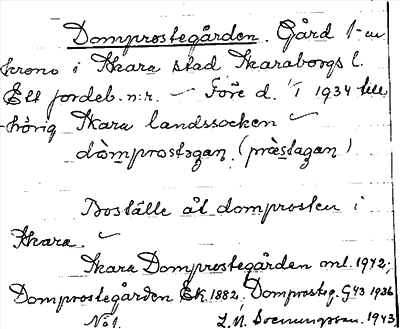 Domprostegården. Gård 1 m
krono i Skara stad Skaraborgs l.
Ett fordeb. n:r. — Före d. 1/1 1934 till-
hörig Skara landssocken
dòmprostəgan. (præstagan)
Boställe åt domprosten i
Skara.
Skara Domprostegården ml. 1942;
Domprostegården Ek. 1882; Domprosteg. G43 1936
Not. 1943